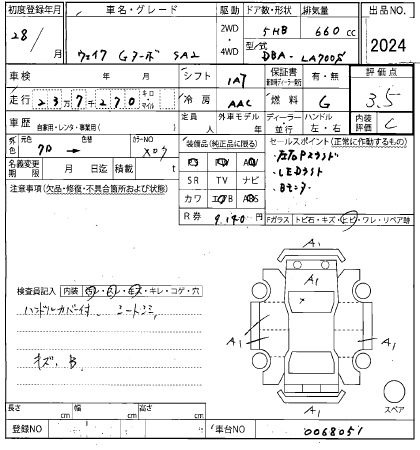 初度登録年月 車名・グレード 駆動 ドア数・形状 排気量 出品NO.
28/ 月 ウェイク Gターボ SA2 2WD・4WD 5HB 660cc 2024
型式 DBA-LA700S
車検 年 月 シフト IAT 保証書 有・無 評価点
走行 23万7千270 キロ マイル 冷房 AAC 燃料 G 3.5
車歴 自家用・レンタ・事業用( ) 定員 人 外車モデル 年 ディーラー・並行 ハンドル 左・右 内装評価 C
外色 クロ 元色 色替 カラーNO X07 装備品(純正品に限る) セールスポイント(正常に作動するもの)
PS PW
名義変更期限 月 日迄 積載 t SR TV ナビ LEDライト
注意事項(欠品・修復・不具合箇所および状態) カワ エアB ABS Bモニター
R券 9,140 Fガラス トビ石・キズ・ヒビ・ワレ・リペア跡
A1
検査員記入 内装 汚レ・コゲ・穴
ハンドルカバー付、シートシミ
A1 A1
キズ、B
A1
スペア
長さ cm 幅 cm 高さ cm
登録NO 車台NO 0068051